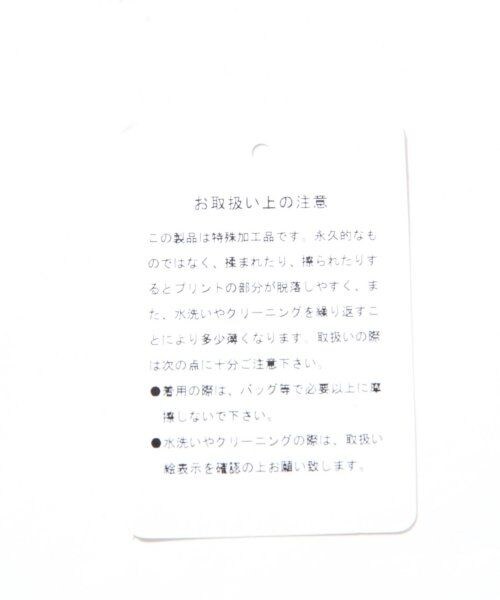 お取扱い上の注意
この製品は特殊加工品です。永久的なも
のではなく、揉まれたり、擦られたりす
るとプリントの部分が脱落しやすく、ま
た、水洗いやクリーニングを繰り返すこ
とにより多少薄くなります。取扱いの際
は次の点に十分ご注意下さい。
●着用の際は、バッグ等で必要以上に摩
擦しないで下さい。
●水洗いやクリーニングの際は、取扱い
絵表示を確認の上お願い致します。